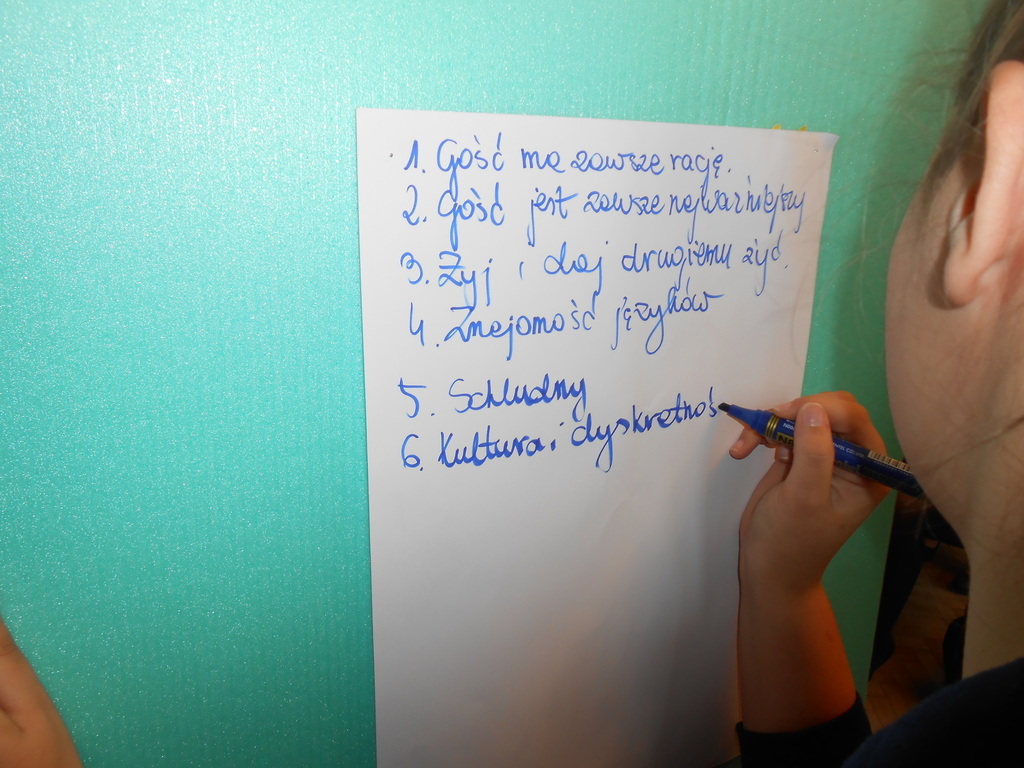 1. Gość ma zawsze rację.
2. Gość jest zawsze najważniejszy
3. Żyj i daj drugiemu żyć.
4. Znajomość języków
5. Schludny
6. Kultura i dyskretnoś